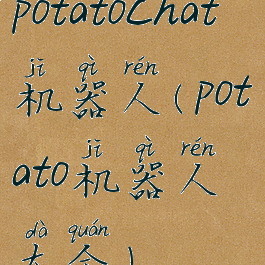 potatoChat
jī qì rén
机器人（pot
jī qì rén
ato机器人
dà quán
大全）